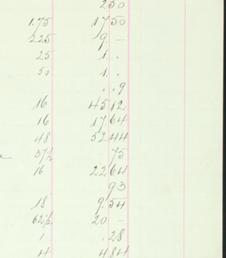 250
1.75 17 50
225 9 –
25 1 .
50 1 .
. . 9
16 45 12
16 17 64
48 52 44
37½ 75
16 22 64
93
18 9 54
62½ 20 –
1 . 28
4 4 84